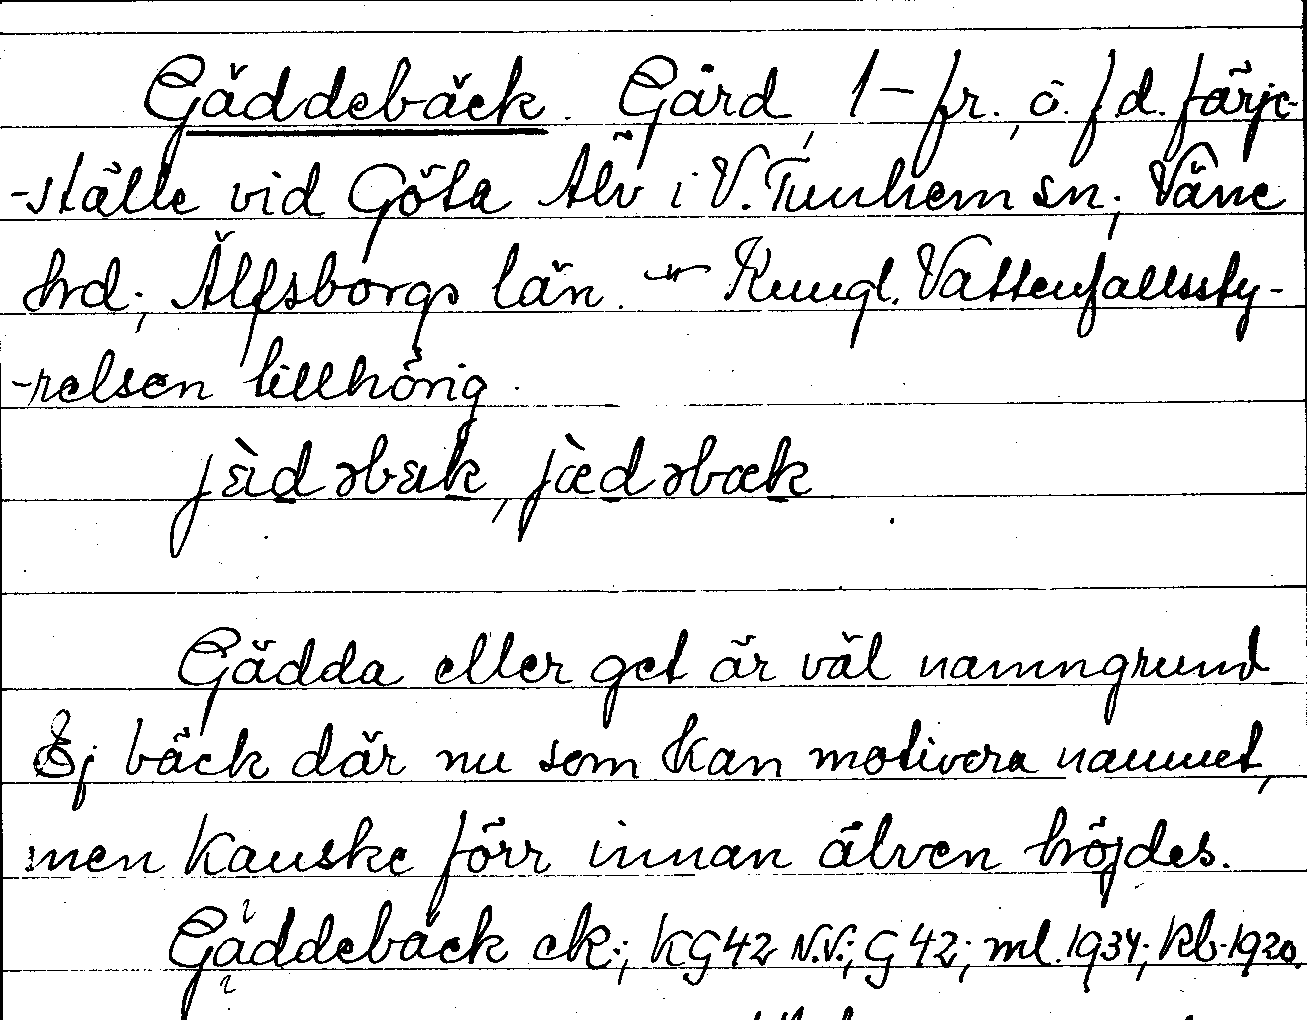 Gäddebäck. Gård, 1-fr., o. f d. färje-
-ställe vid Göta Älv i V. Tunhem sn; Väne
hrd; Älfsborgs län. - Kungl. Vattenfallssty-
-relsen tillhörig.
jɛ̀dəbɛk, jæ̀dəbæk
Gädda eller get är väl namngrund
Ej bäck där nu som kan motivera namnet,
men kanske förr innan älven höjdes.
Gäddebäck ek; KG42 N.V.; G 42; ml. 1934; Kb. 1920.